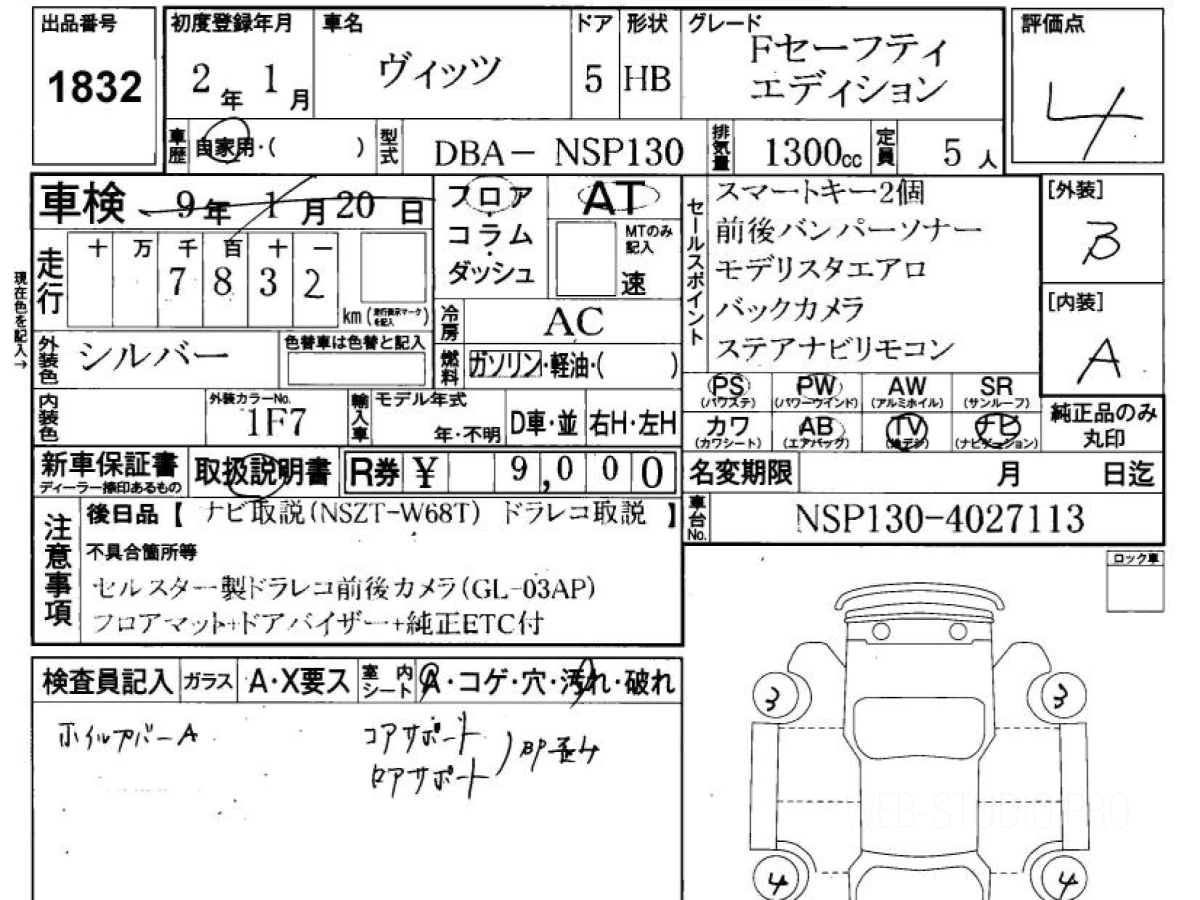 出品番号
1832
初度登録年月
2年 1月
車名
ヴィッツ
ドア
5
形状
HB
グレード
Fセーフティ
エディション
評価点
4
車歴
自家用・( )
型式
DBA- NSP130
排気量
1300cc
定員
5人
車検 9年 1月20日
フロア
・
コラム
・
ダッシュ
AT
MTのみ
記入
速
セールスポイント
スマートキー2個
前後バンパーソナー
モデリスタエアロ
バックカメラ
ステアナビリモコン
[外装]
B
[内装]
A
現在色を記入→
走行
十 万 千 百 十 一
7 8 3 2
km (走行表示マークを記入)
冷房
AC
外装色
シルバー
色替車は色替と記入
燃料
ガソリン・軽油・( )
内装色
外装カラーNo.
1F7
輸入車
モデル年式
年・不明
D車・並
右H・左H
PS (パワステ)
PW (パワーウインド)
AW (アルミホイル)
SR (サンルーフ)
カワ (カワシート)
AB (エアバッグ)
TV (地デジ)
ナビ (ナビゲーション)
純正品のみ
丸印
新車保証書
ディーラー捺印あるもの
取扱説明書
R券 ¥ 9,000
名変期限
月 日迄
注意事項
後日品【 ナビ取説(NSZT-W68T) ドラレコ取説 】
車台No.
NSP130-4027113
不具合箇所等
セルスター製ドラレコ前後カメラ(GL-03AP)
フロアマット+ドアバイザー+純正ETC付
ロック車
検査員記入
ガラス
A・X要ス
室内シート
A・コゲ・穴・汚れ・破れ
ホイルカバーA
コアサポート
ロアサポート
)即歪み
3
3
4
4
WEB-STUDIO.PRO